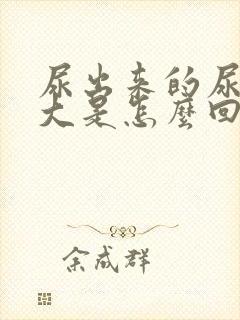 尿出来的尿
大是怎麼回
余成群